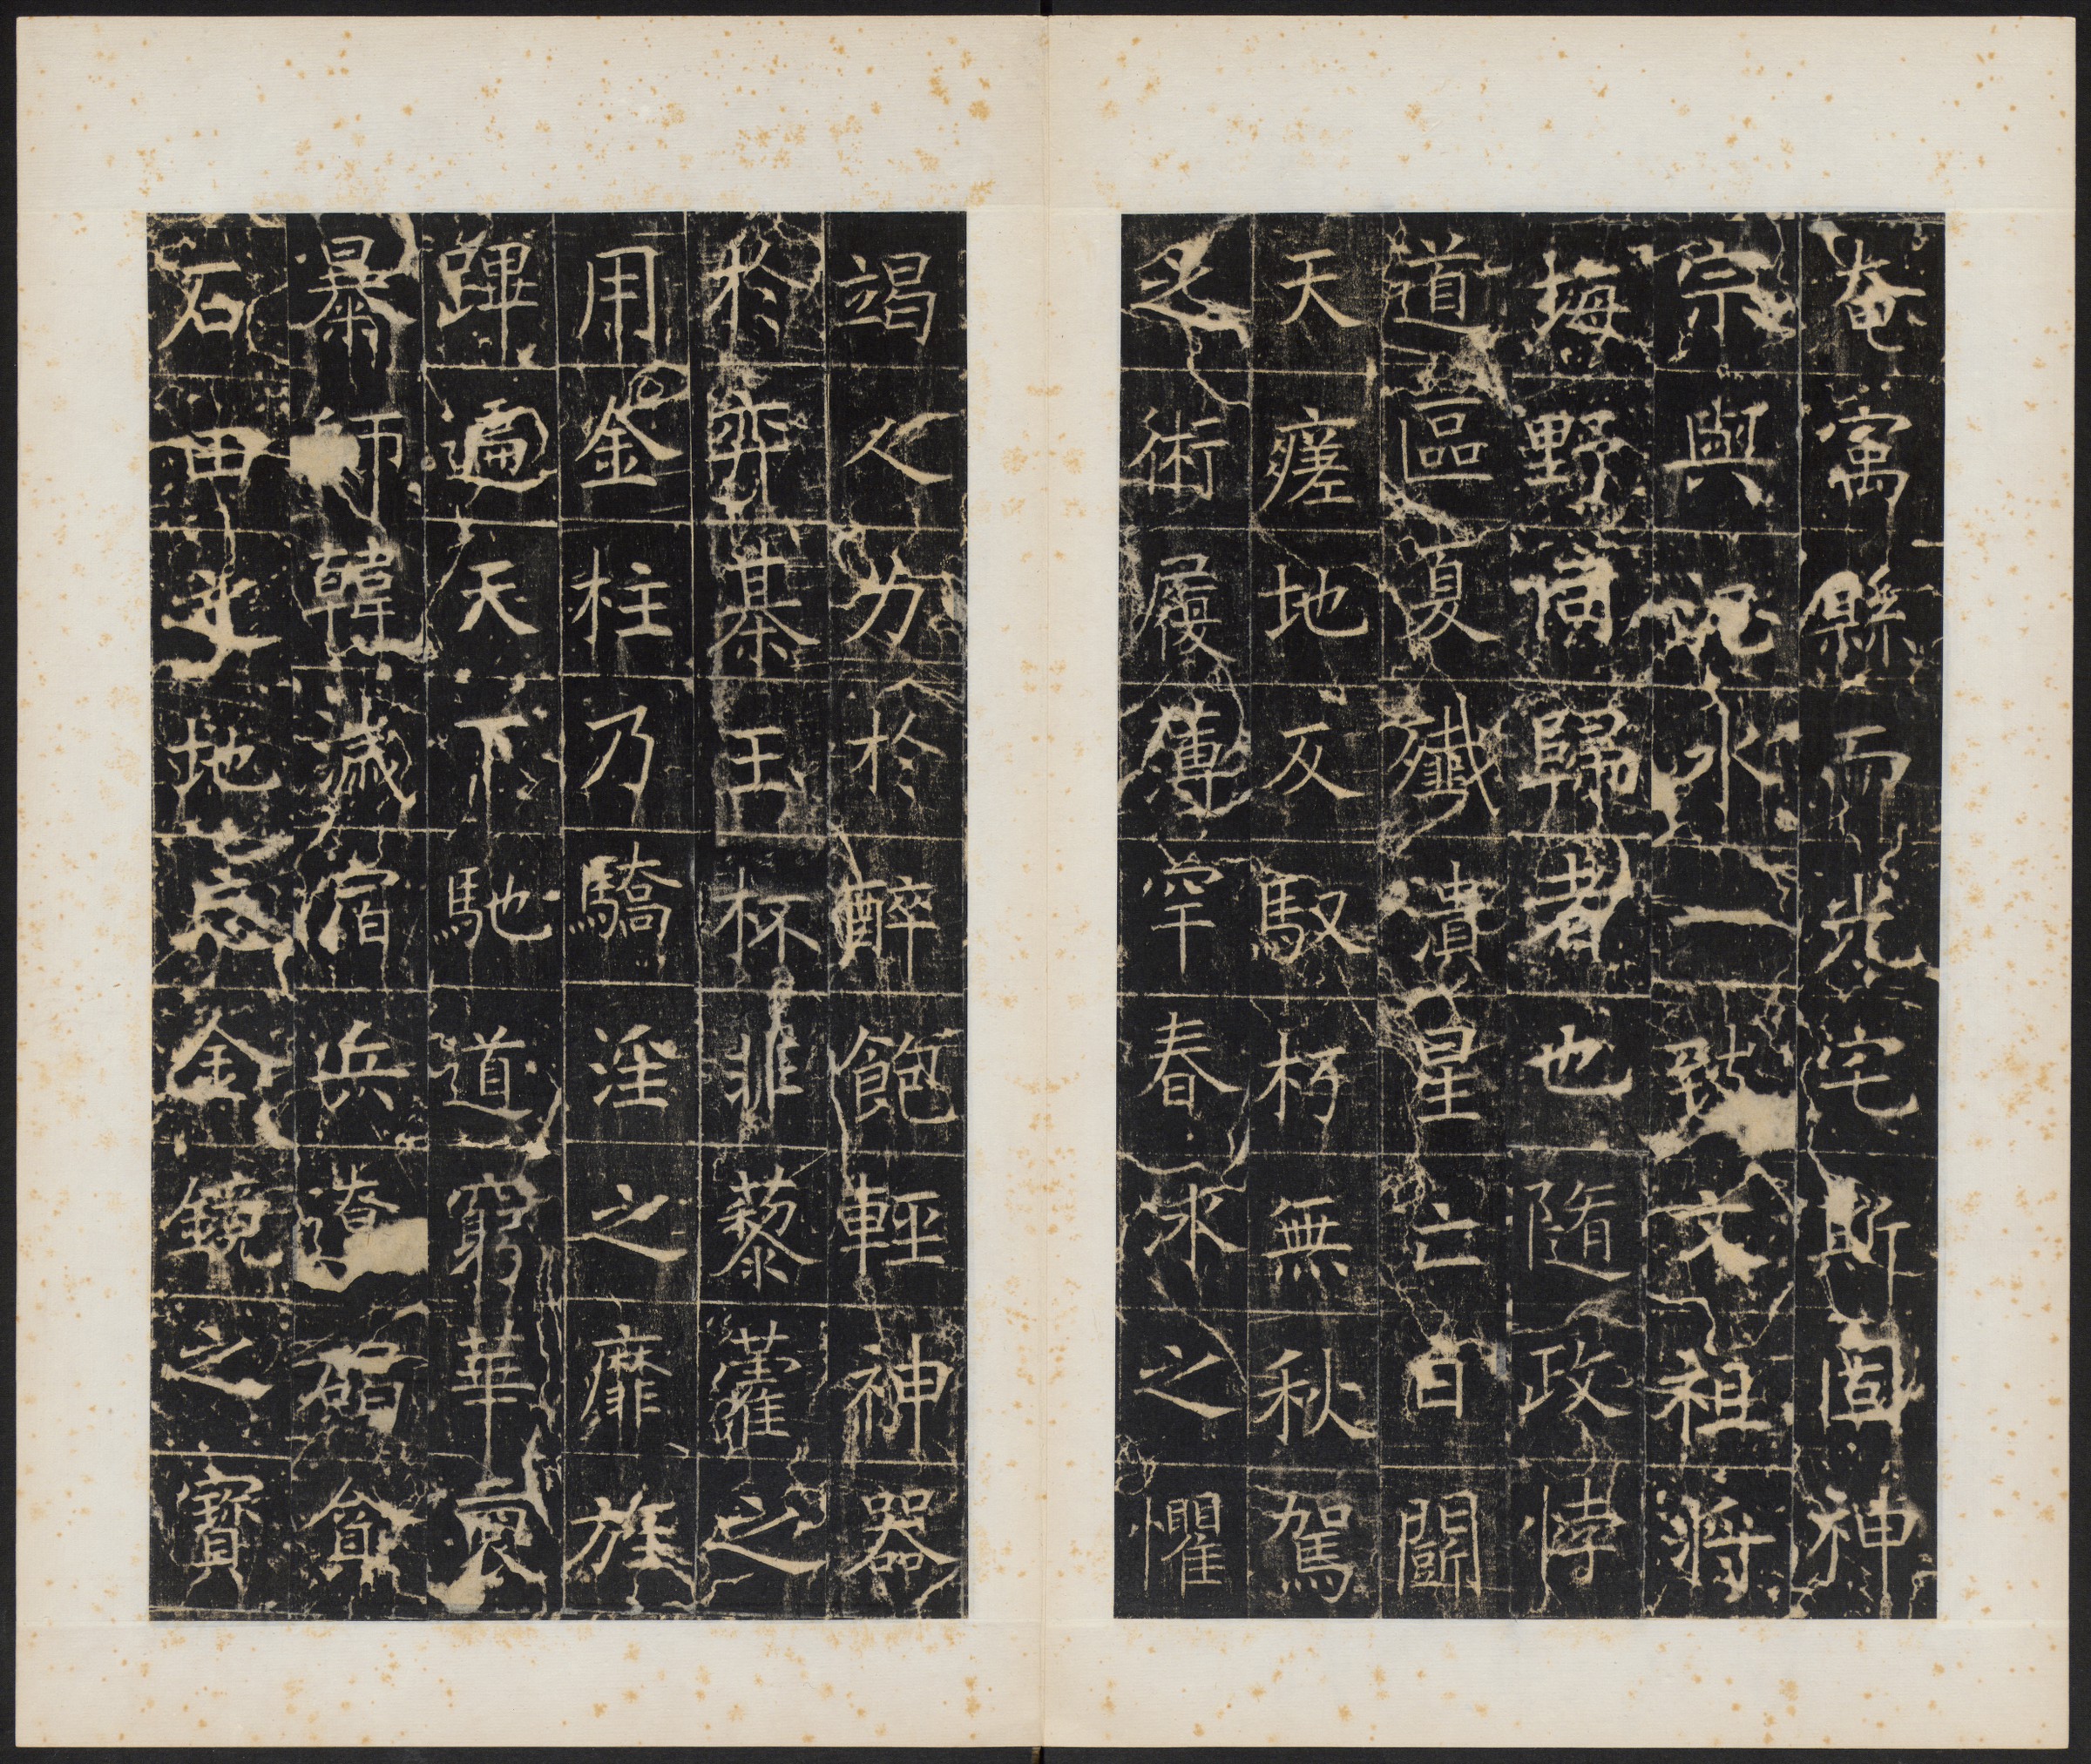 奄寓縣而光宅斯固神
宗與水一致文祖將
坶野同歸者也隨政悖
道區夏殲潰星亡日鬭
天瘥地反馭朽無秋駕
之術履薄罕春冰之懼
竭人力於醉飽輕神器
於弈棊玉杯非藜藿之
用金柱乃驕淫之靡旌
蹕遍天下馳道窮華裔
暴師韓濊宿兵遼碣貪
石田之地忘金鏡之寶